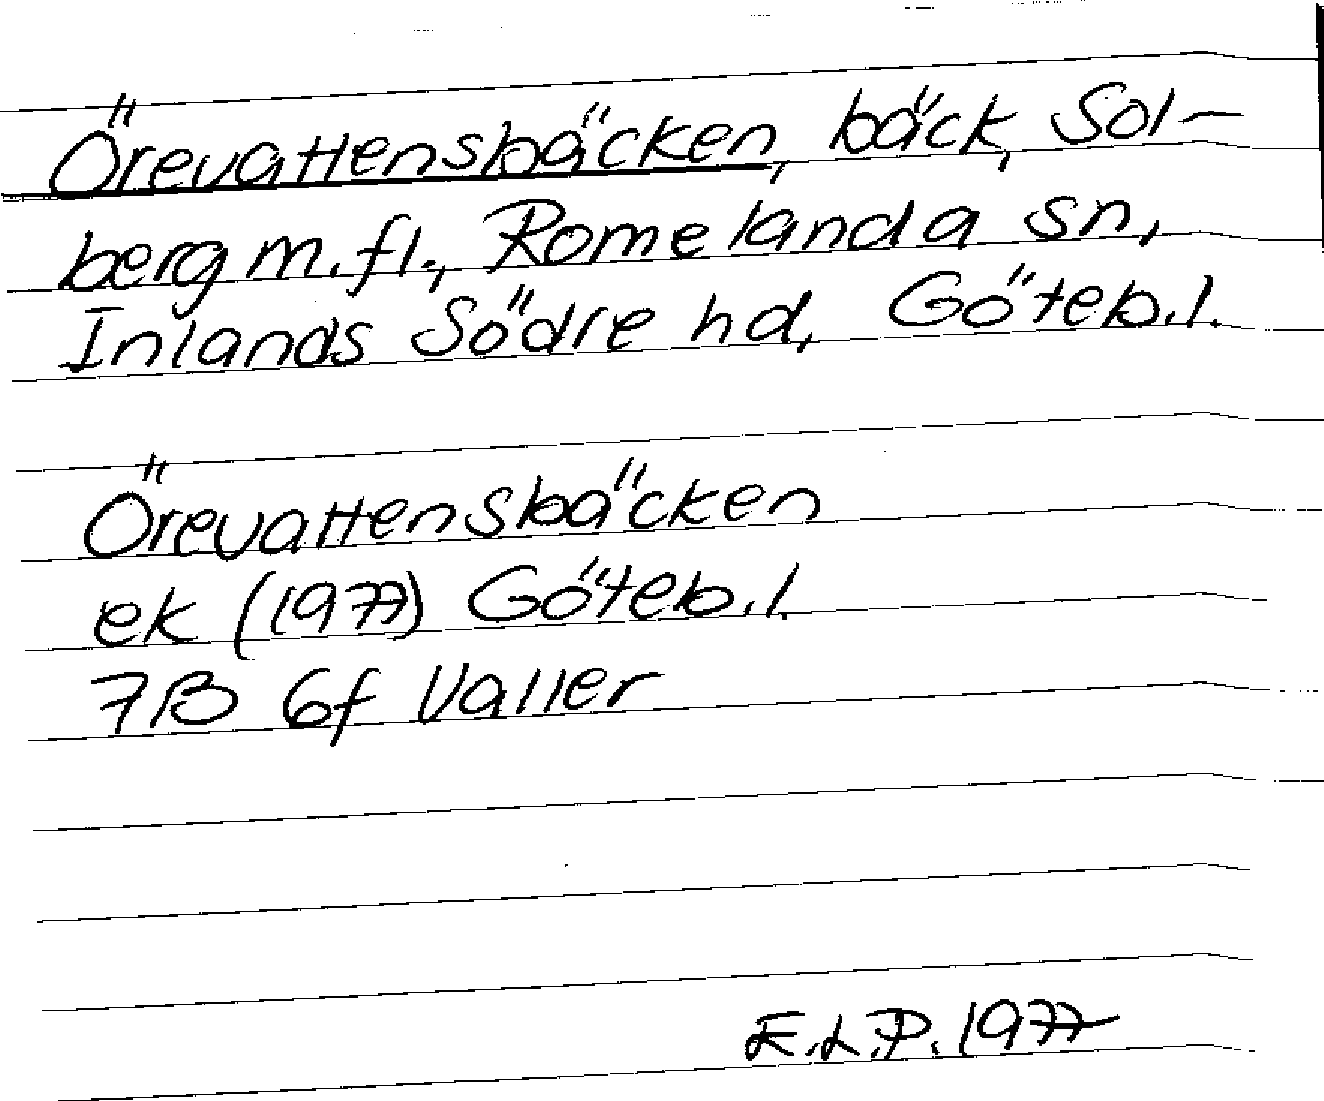 Örevattensbäcken, bäck, Sol-
berg m.fl., Romelanda sn,
Inlands Södre hd, Göteb.l.
Örevattensbäcken
ek (1977) Göteb.l.
7B 6f Valler
E.L.P. 1977